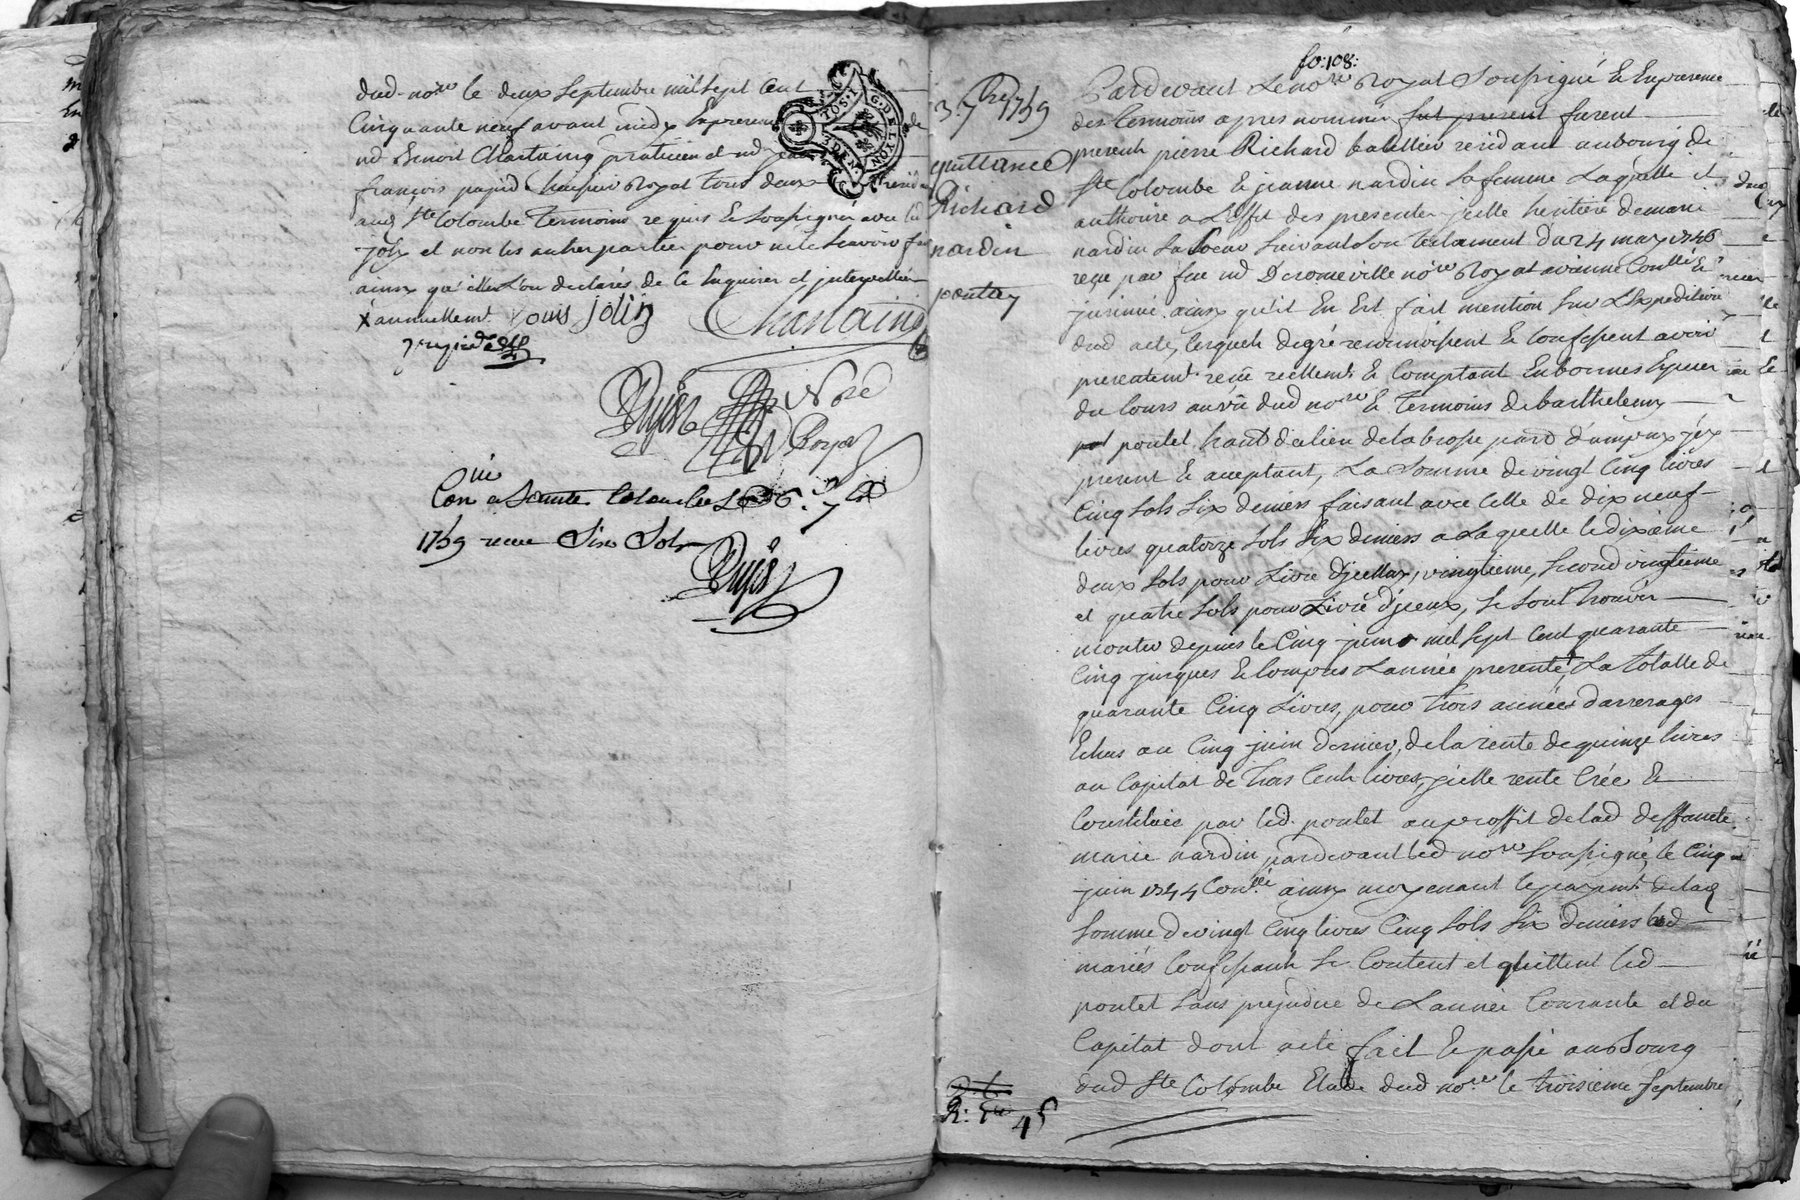 dud. no.re le deux septembre mil sept cent
Cinquante neuf avant midy En presence de
md Benoit Chastaing praticien et md jean
françois papid huissier Royal tous deux resid
aud ste Colombe temoins requis & soussignés avec led
joly et non les autres parties pour ne le scavoir fai
ainsy qu'elles l'on declarés de ce Enquises et interpellées
x annuellem.t
Louis jolly Chastaing
nore
Royal
Con.lé a Sainte Colombe Le 6. 7.bre
1759 recu Six Sols
G. DE LYON
fo: 108:
3. 7bre 1759
quittance
Richard
nardin
poulet
Pardevant Le no.re Royal Soussigné & En presence
des temoins apres nommes fut present furent
presents pierre Richard battellier residant au bourg de
ste Colombe & jeanne nardin sa femme Laquelle il
authorise a L'effet des presentes, jcelle heritiere de marie
nardin sa soeur suivant son testament du 24 may 1746
reçu par feu md Deromeville no.re Royal a vienne Con.llé &
jnsinué, ainsy qu'il En Est fait mention sur L'Expedition
dud acte, lesquels de gré reconnoissent & confessent avoir
presentem.t reçu reellem.t & Comptant En bonnes Especes
du Cours au vû dud no.re & temoins de barthelemy
poulet, habt du lieu de la brosse parr.e d'ampuy jcy
present & acceptant, La Somme de vingt Cinq livres
Cinq sols six deniers faisant avec celle de dix neuf
livres quatorze sols six deniers a Laquelle le dixieme
deux sols pour Livre d'jcelluy, vingtieme, second vingtieme
et quatre sols pour Livre d'jceux, se sont trouvés
monter depuis le Cinq juin mil sept cent quarante
Cinq jusques & compris L'année presente, La totalle de
quarante Cinq Livres, pour trois années d'arrerages
Echus au Cinq juin dernier, de la rente de quinze livres
au Capital de trois Cents livres, jcelle rente Créé &
Constituée par led. poulet au proffit de lad deffunte
marie nardin, pardevant led no.re soussigné, le Cinq
juin 1744 Con.llé ainsy moyenant le payem.t de lad
somme de vingt Cinq livres Cinq sols six deniers led
mariés Confessants se Content et quittent led
poulet sans prejudice de L'année Courante et du
Capital dont acte fait & passé au Bourg
dud ste Colombe Etude dud no.re le troisieme septembre
45